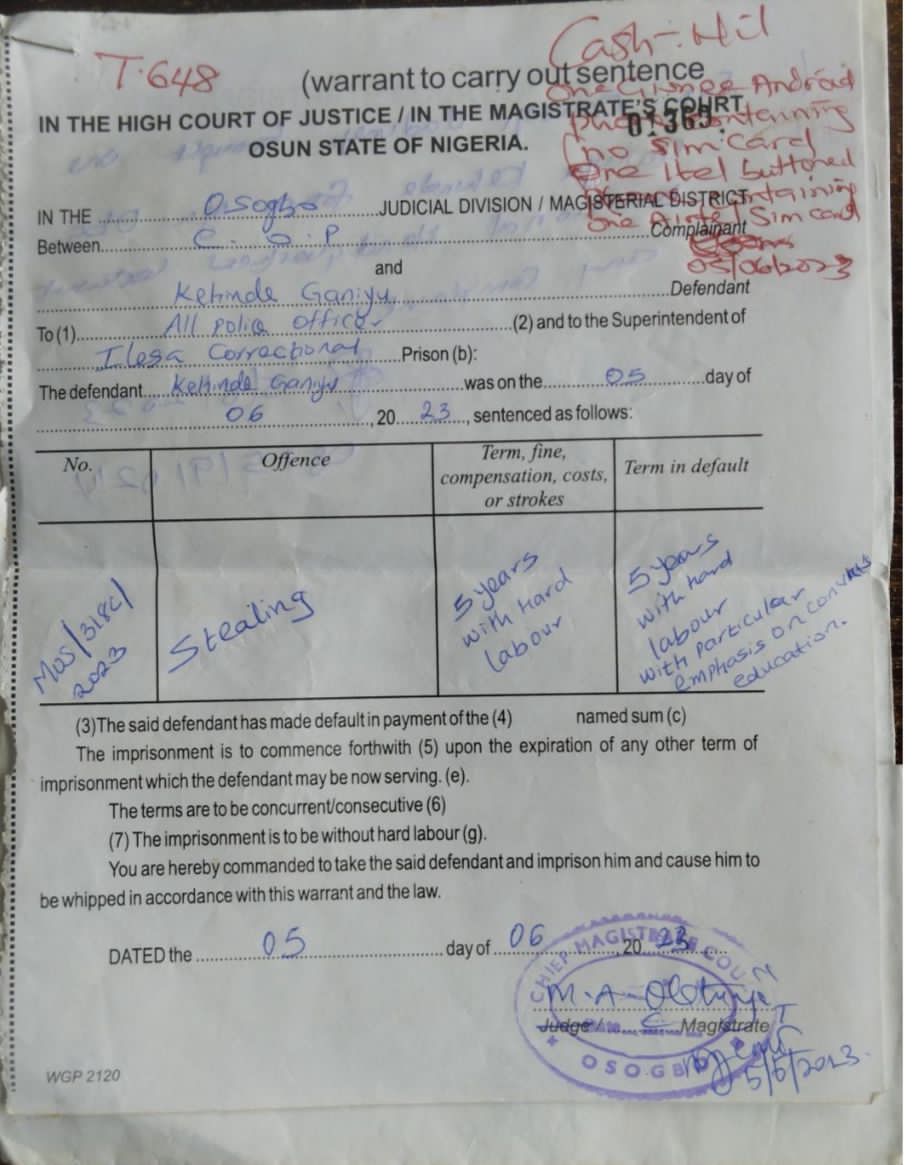 T.648
Cash-: Nil
(warrant to carry out sentence
One Gionee Android
IN THE HIGH COURT OF JUSTICE / IN THE MAGISTRATE'S COURT,
phone containing
01369
OSUN STATE OF NIGERIA.
(no Sim Card
One itel buttoned
IN THE Osogbo JUDICIAL DIVISION / MAGISTERIAL DISTRICT
containing
One Airtel Sim card
Between C. O. P Complainant
and
05/06/2023
Kehinde Ganiyu Defendant
To (1) All police officer (2) and to the Superintendent of
Ilesa Correctional Prison (b):
The defendant Kehinde Ganiyu was on the 05 day of
06, 20 23, sentenced as follows:
No. Offence Term, fine, compensation, costs, or strokes Term in default
MOS/318C/2023 Stealing 5 years with Hard labour 5 years with hard labour with particular emphasis on convicts education.
(3)The said defendant has made default in payment of the (4) named sum (c)
The imprisonment is to commence forthwith (5) upon the expiration of any other term of
imprisonment which the defendant may be now serving. (e).
The terms are to be concurrent/consecutive (6)
(7) The imprisonment is to be without hard labour (g).
You are hereby commanded to take the said defendant and imprison him and cause him to
be whipped in accordance with this warrant and the law.
DATED the 05 day of 06 20 23
CHIEF MAGISTRATE COURT
M. A.
Judge / Magistrate
OSOGBO
5/6/2023.
WGP 2120